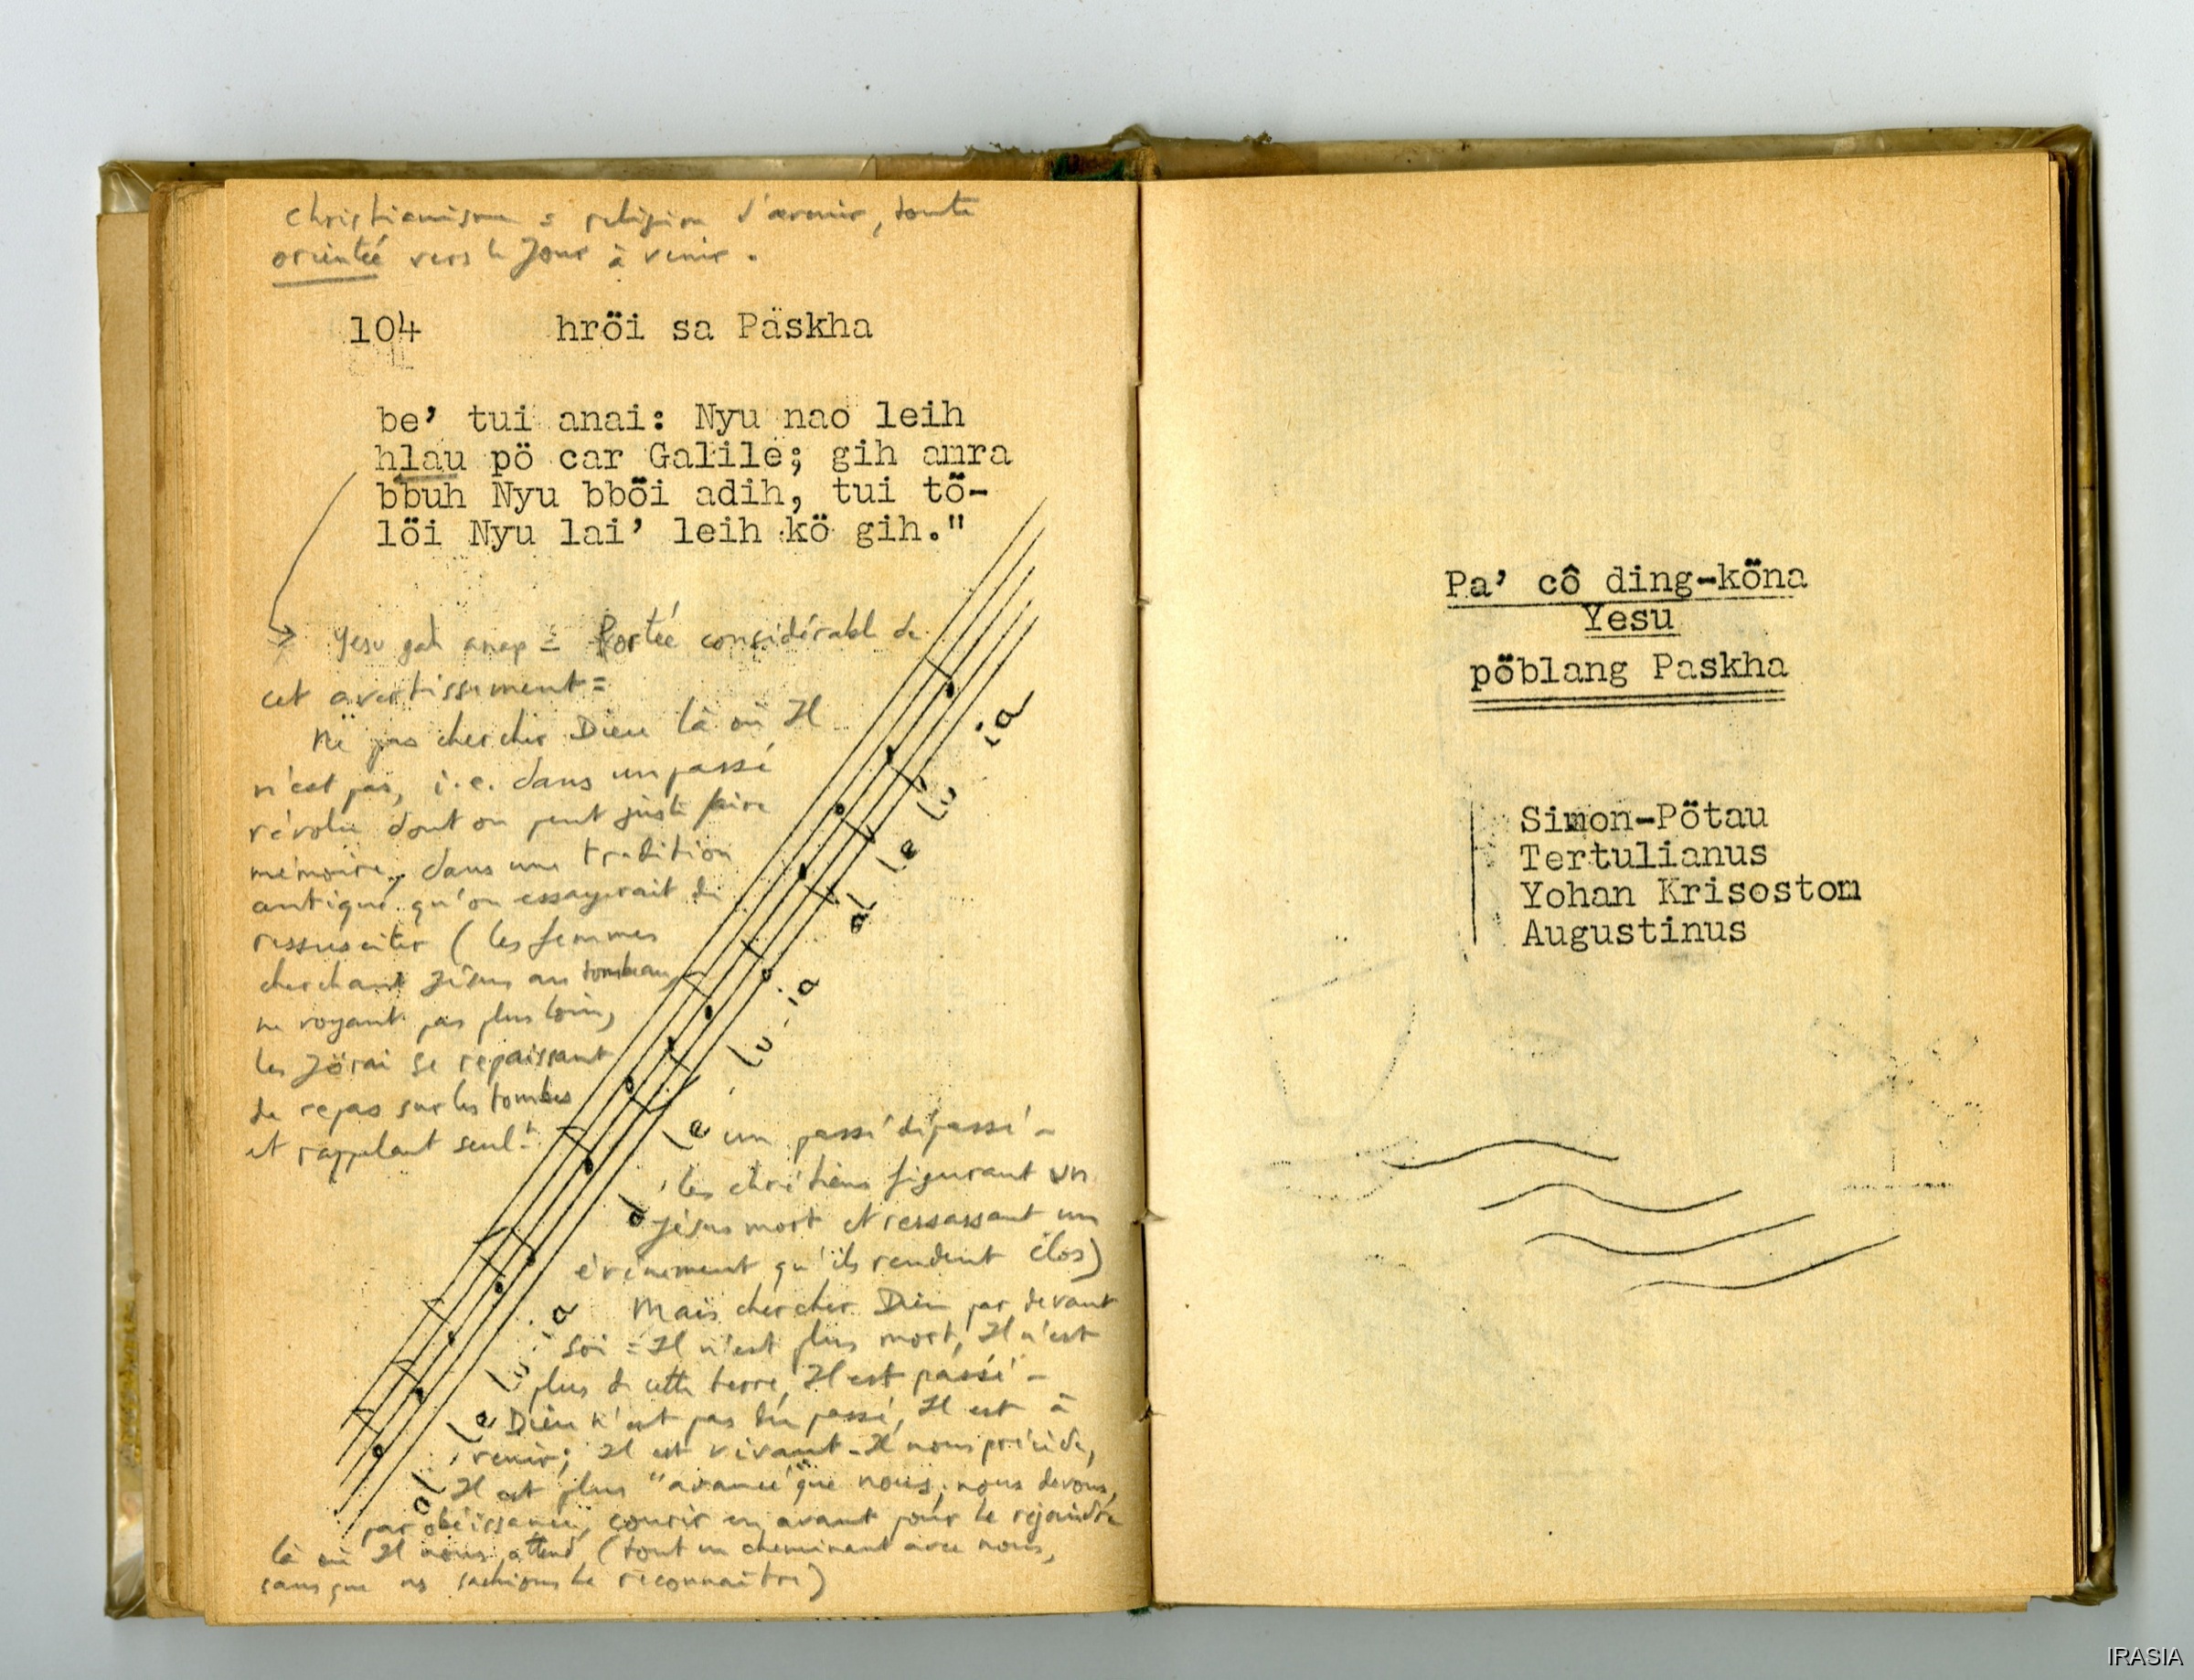 Christianisme = religion d'avenir, toute
orientée vers le Jour à venir.
104 hröi sa Päskha
be’ tui anai: Nyu nao leih
hlau pö car Galilë; gih amra
bbuh Nyu bböi adih, tui tö-
löi Nyu lai’ leih kö gih."
Yesu gah anap = Portée considérable de
cet avertissement =
Ne pas chercher Dieu là où Il
n'est pas, i.e. dans un passé
révolu dont on peut juste faire
mémoire, dans une tradition
antique qu'on essayerait de
ressusciter (les femmes
cherchant Jésus au tombeau,
ne voyant pas plus loin,
les Jörai se repaissant
de repas sur les tombes
et rappelant seult
un passé dépassé -
les chrétiens figurant un
Jésus mort et ressassant un
événement qu'ils rendent clos)
Mais chercher Dieu par devant
soi = Il n'est plus mort, Il n'est
plus de cette terre, Il est passé -
Dieu n'est pas du passé, Il est à
venir; Il est vivant - Il nous précède,
Il est plus "avancé" que nous; nous devons,
par obéissance, courir en avant pour le rejoindre
là où Il nous attend (tout en cheminant avec nous,
sans que ns sachions le reconnaître)
al le lu ia al le lu ia al le lu ia
Pa’ cô ding-köna
Yesu
pöblang Paskha
Simon-Pötau
Tertulianus
Yohan Krisostom
Augustinus
IRASIA